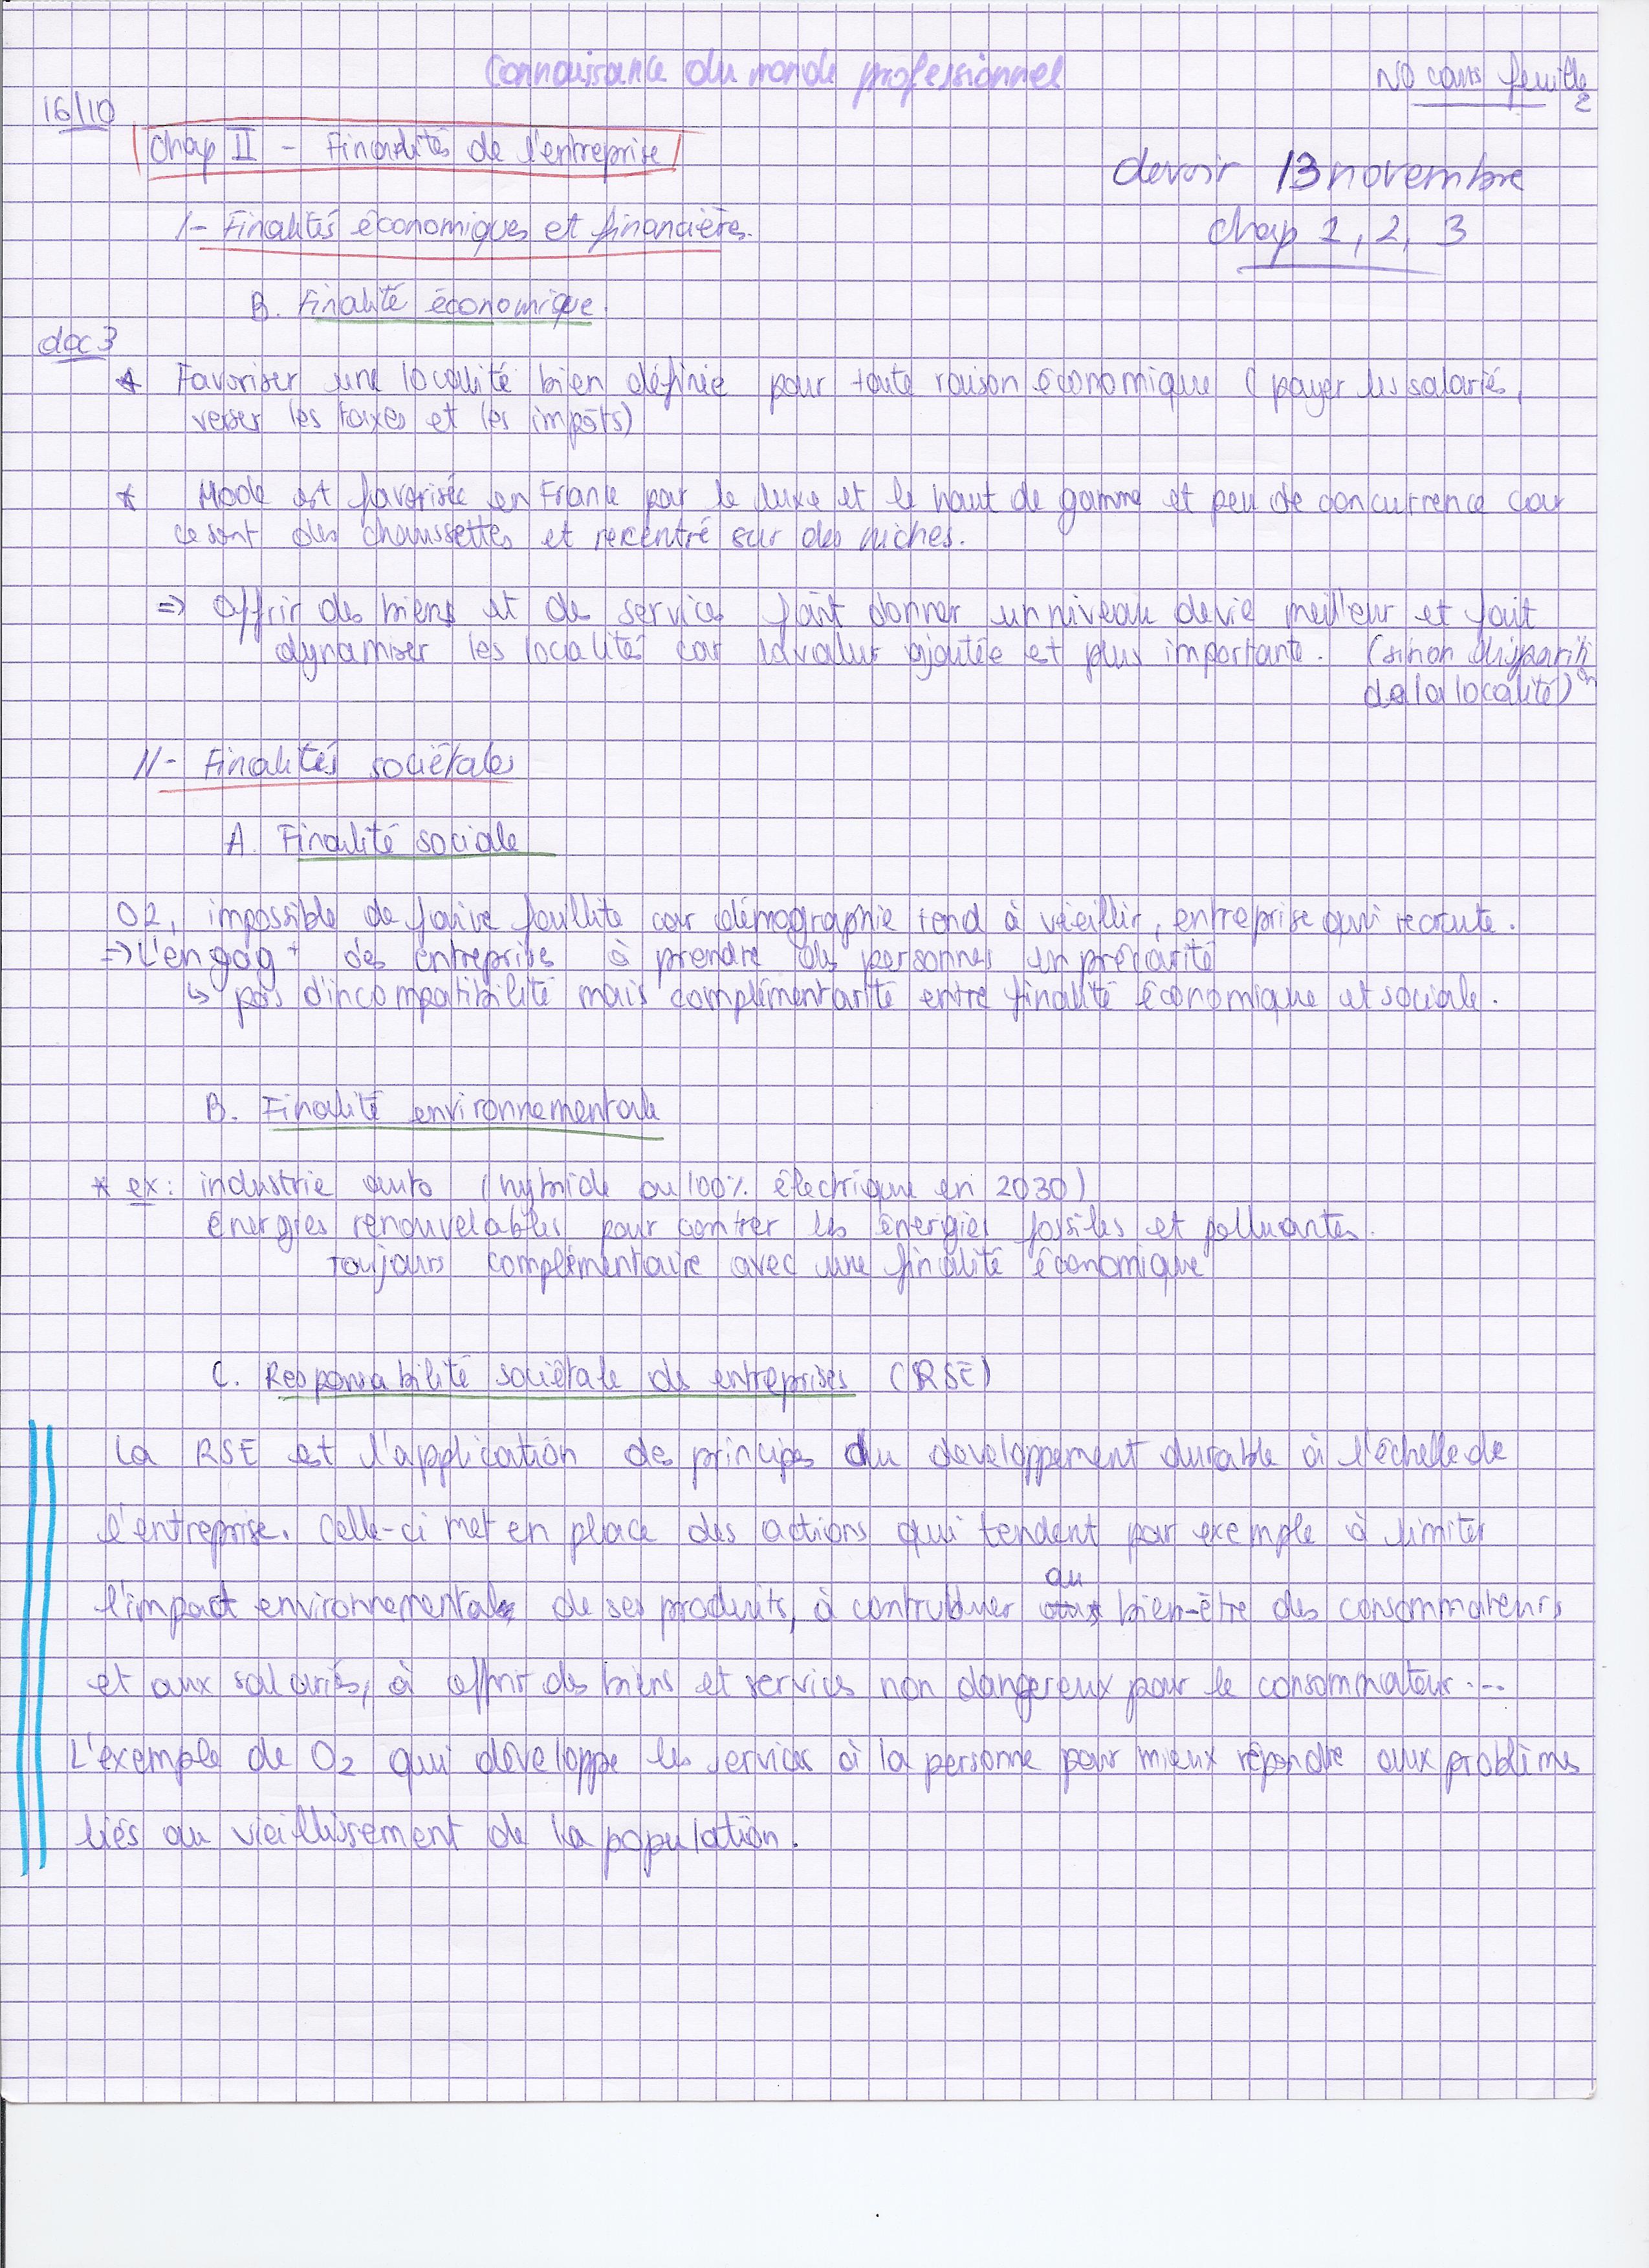 Connaissance du monde professionnel
No cours feuille 2
16/10
Chap II - Finalités de l'entreprise
devoir 13 novembre
chap 1, 2, 3
I- Finalités économiques et financières.
B. Finalité économique.
doc 3
* Favoriser une localité bien définie pour toute raison économique (payer les salariés,
verser les taxes et les impôts)
* Mode est favorisée en France par le luxe et le haut de gamme et peu de concurrence car
ce sont des chaussettes et recentré sur des niches.
=> Offrir des biens et de services fait donner un niveau de vie meilleur et fait
dynamiser les localités car la valeur ajoutée est plus importante. (sinon disparition
de la localité)
II- Finalités sociétales
A. Finalité sociale
O2, impossible de faire faillite car démographie tend à vieillir, entreprise qui recrute.
=> L'engagt des entreprises à prendre des personnes en précarité
↳ pas d'incompatibilité mais complémentarité entre finalité économique et sociale.
B. Finalité environnementale
* ex: industrie auto (hybride ou 100% électrique en 2030)
énergies renouvelables pour contrer les énergies fossiles et polluantes.
Toujours complémentaire avec une finalité économique
C. Responsabilité sociétale des entreprises (RSE)
La RSE est l'application de principes du developpement durable à l'échelle de
l'entreprise. Celle-ci met en place des actions qui tendent par exemple à limiter
l'impact environnemental de ses produits, à contribuer au bien-être des consommateurs
et aux salariés, à offrir des biens et services non dangereux pour le consommateur...
L'exemple de O2 qui développe les services à la personne pour mieux répondre aux problèmes
liés au vieillissement de la population.